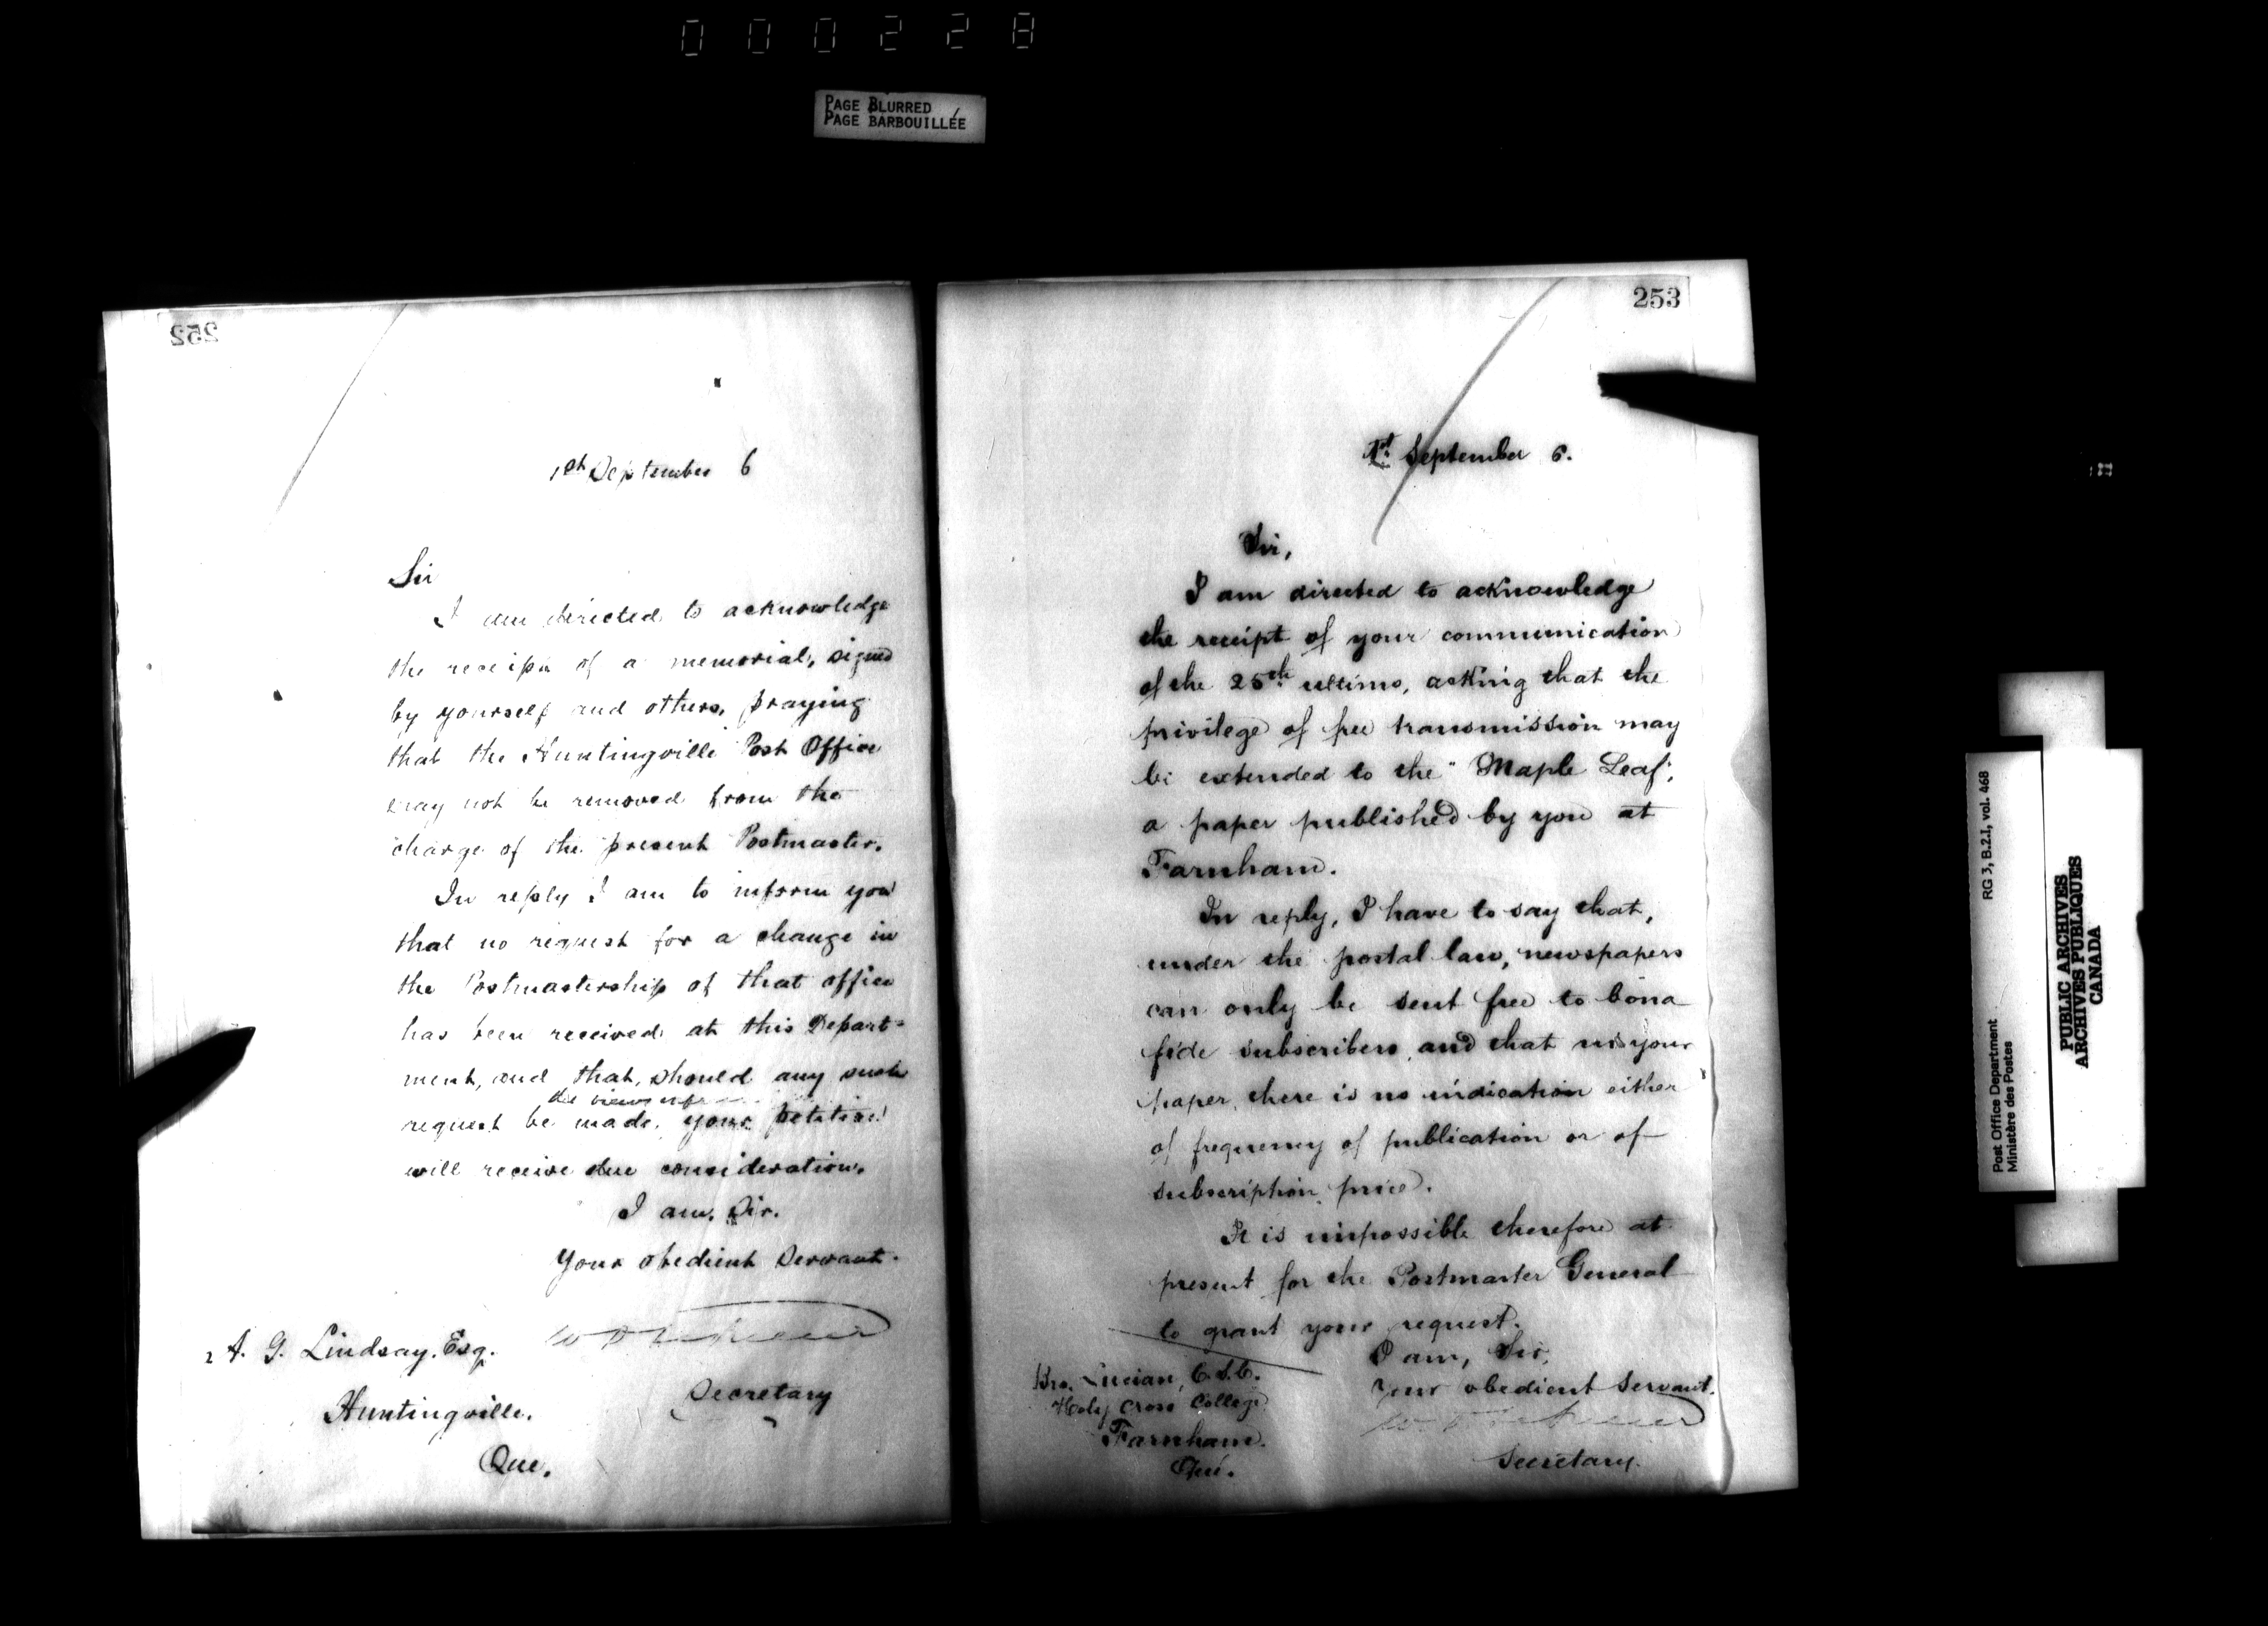 000228
PAGE BLURRED
PAGE BARBOUILLÉE
252
1st September 6
Sir
I am directed to acknowledge
the receipt of a memorial, signed
by yourself and others, praying
that the Huntingville Post Office
may not be removed from the
charge of the present Postmaster.
In reply I am to inform you
that no request for a change in
the Postmastership of that office
has been received at this Depart=
ment, and that, should any such
the views
request be made, your petition
will receive due consideration.
I am, Sir.
Your obedient Servant.
A. G. Lindsay. Esq.
Secretary
Huntingville.
Que.
253
1st September 6.
Sir,
I am directed to acknowledge
the receipt of your communication
of the 25th ultimo, asking that the
privilege of free transmission may
be extended to the "Maple Leaf",
a paper published by you at
Farnham.
In reply, I have to say that,
under the postal law, newspapers
can only be sent free to bona
fide subscribers, and that in your
paper, there is no indication either
of frequency of publication or of
subscription price.
It is impossible therefore at
present for the Postmaster General
to grant your request.
I am, Sir,
Your obedient Servant.
Secretary.
Bro. Lucian, C.S.C.
Holy Cross College
Farnham.
Qué.
RG 3, B.2.I, vol. 468
Post Office Department
Ministère des Postes
PUBLIC ARCHIVES
ARCHIVES PUBLIQUES
CANADA